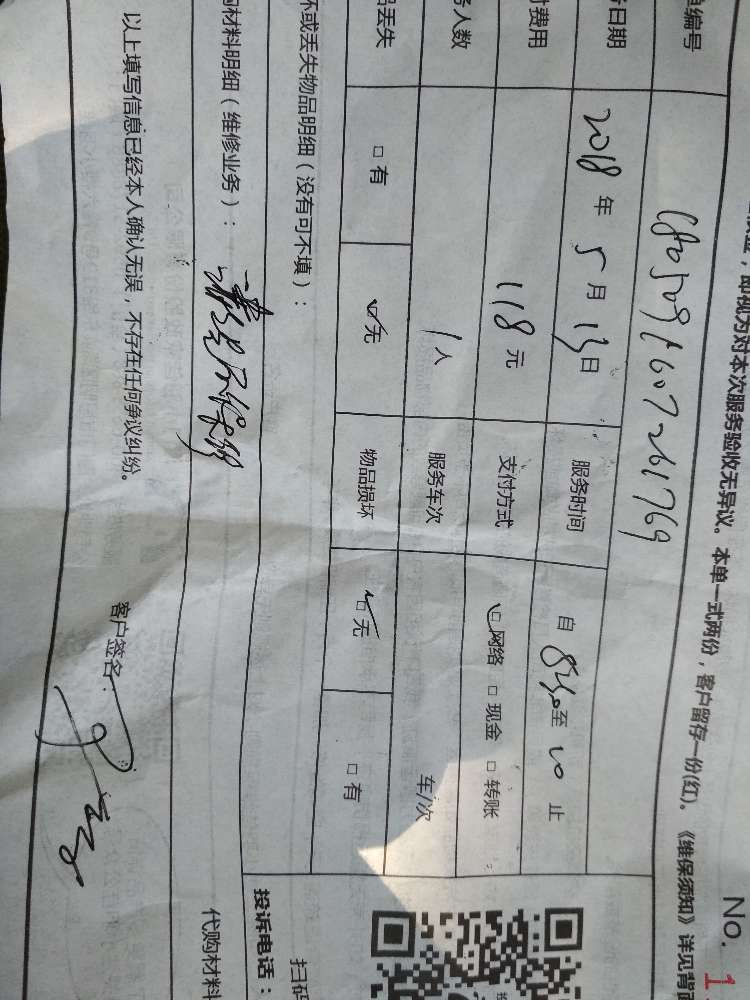 No. 1
即视为对本次服务验收无异议。本单一式两份，客户留存一份(红)。《维保须知》详见背
单编号
日期 2018 年 5 月 13 日 服务时间 自 8:30 至 10 止
费用 118 元 支付方式 ☑网络 □现金 □转账
人数 1 人 服务车次 车/次
丢失 □有 ☑无 物品损坏 ☑无 □有
坏或丢失物品明细（没有可不填）：
扫码
投诉电话：
购材料明细（维修业务）：
代购材料
以上填写信息已经本人确认无误，不存在任何争议纠纷。
客户签名：